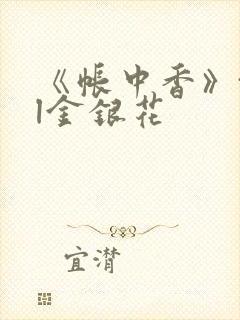 《帐中香》
|金银花
宜潸